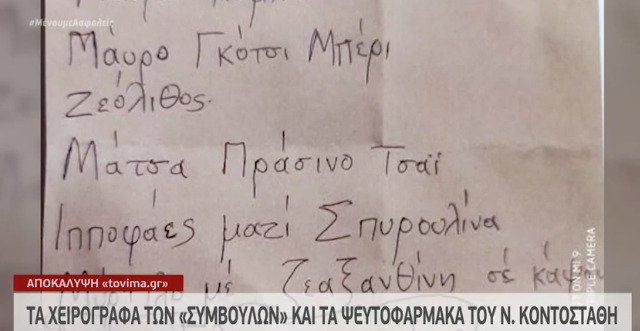 #ΜένουμεΑσφαλείς
Μαύρο Γκότσι Μπέρι
Ζεόλιθος.
Μάτσα Πράσινο Τσάϊ
Ιπποφάες μαζί Σπυρουλίνα
με Ζεαξανθίνη σέ
CAMERA
ΑΠΟΚΑΛΥΨΗ «tovima.gr»
ΤΑ ΧΕΙΡΟΓΡΑΦΑ ΤΩΝ «ΣΥΜΒΟΥΛΩΝ» ΚΑΙ ΤΑ ΨΕΥΤΟΦΑΡΜΑΚΑ ΤΟΥ Ν. ΚΟΝΤΟΣΤΑΘΗ